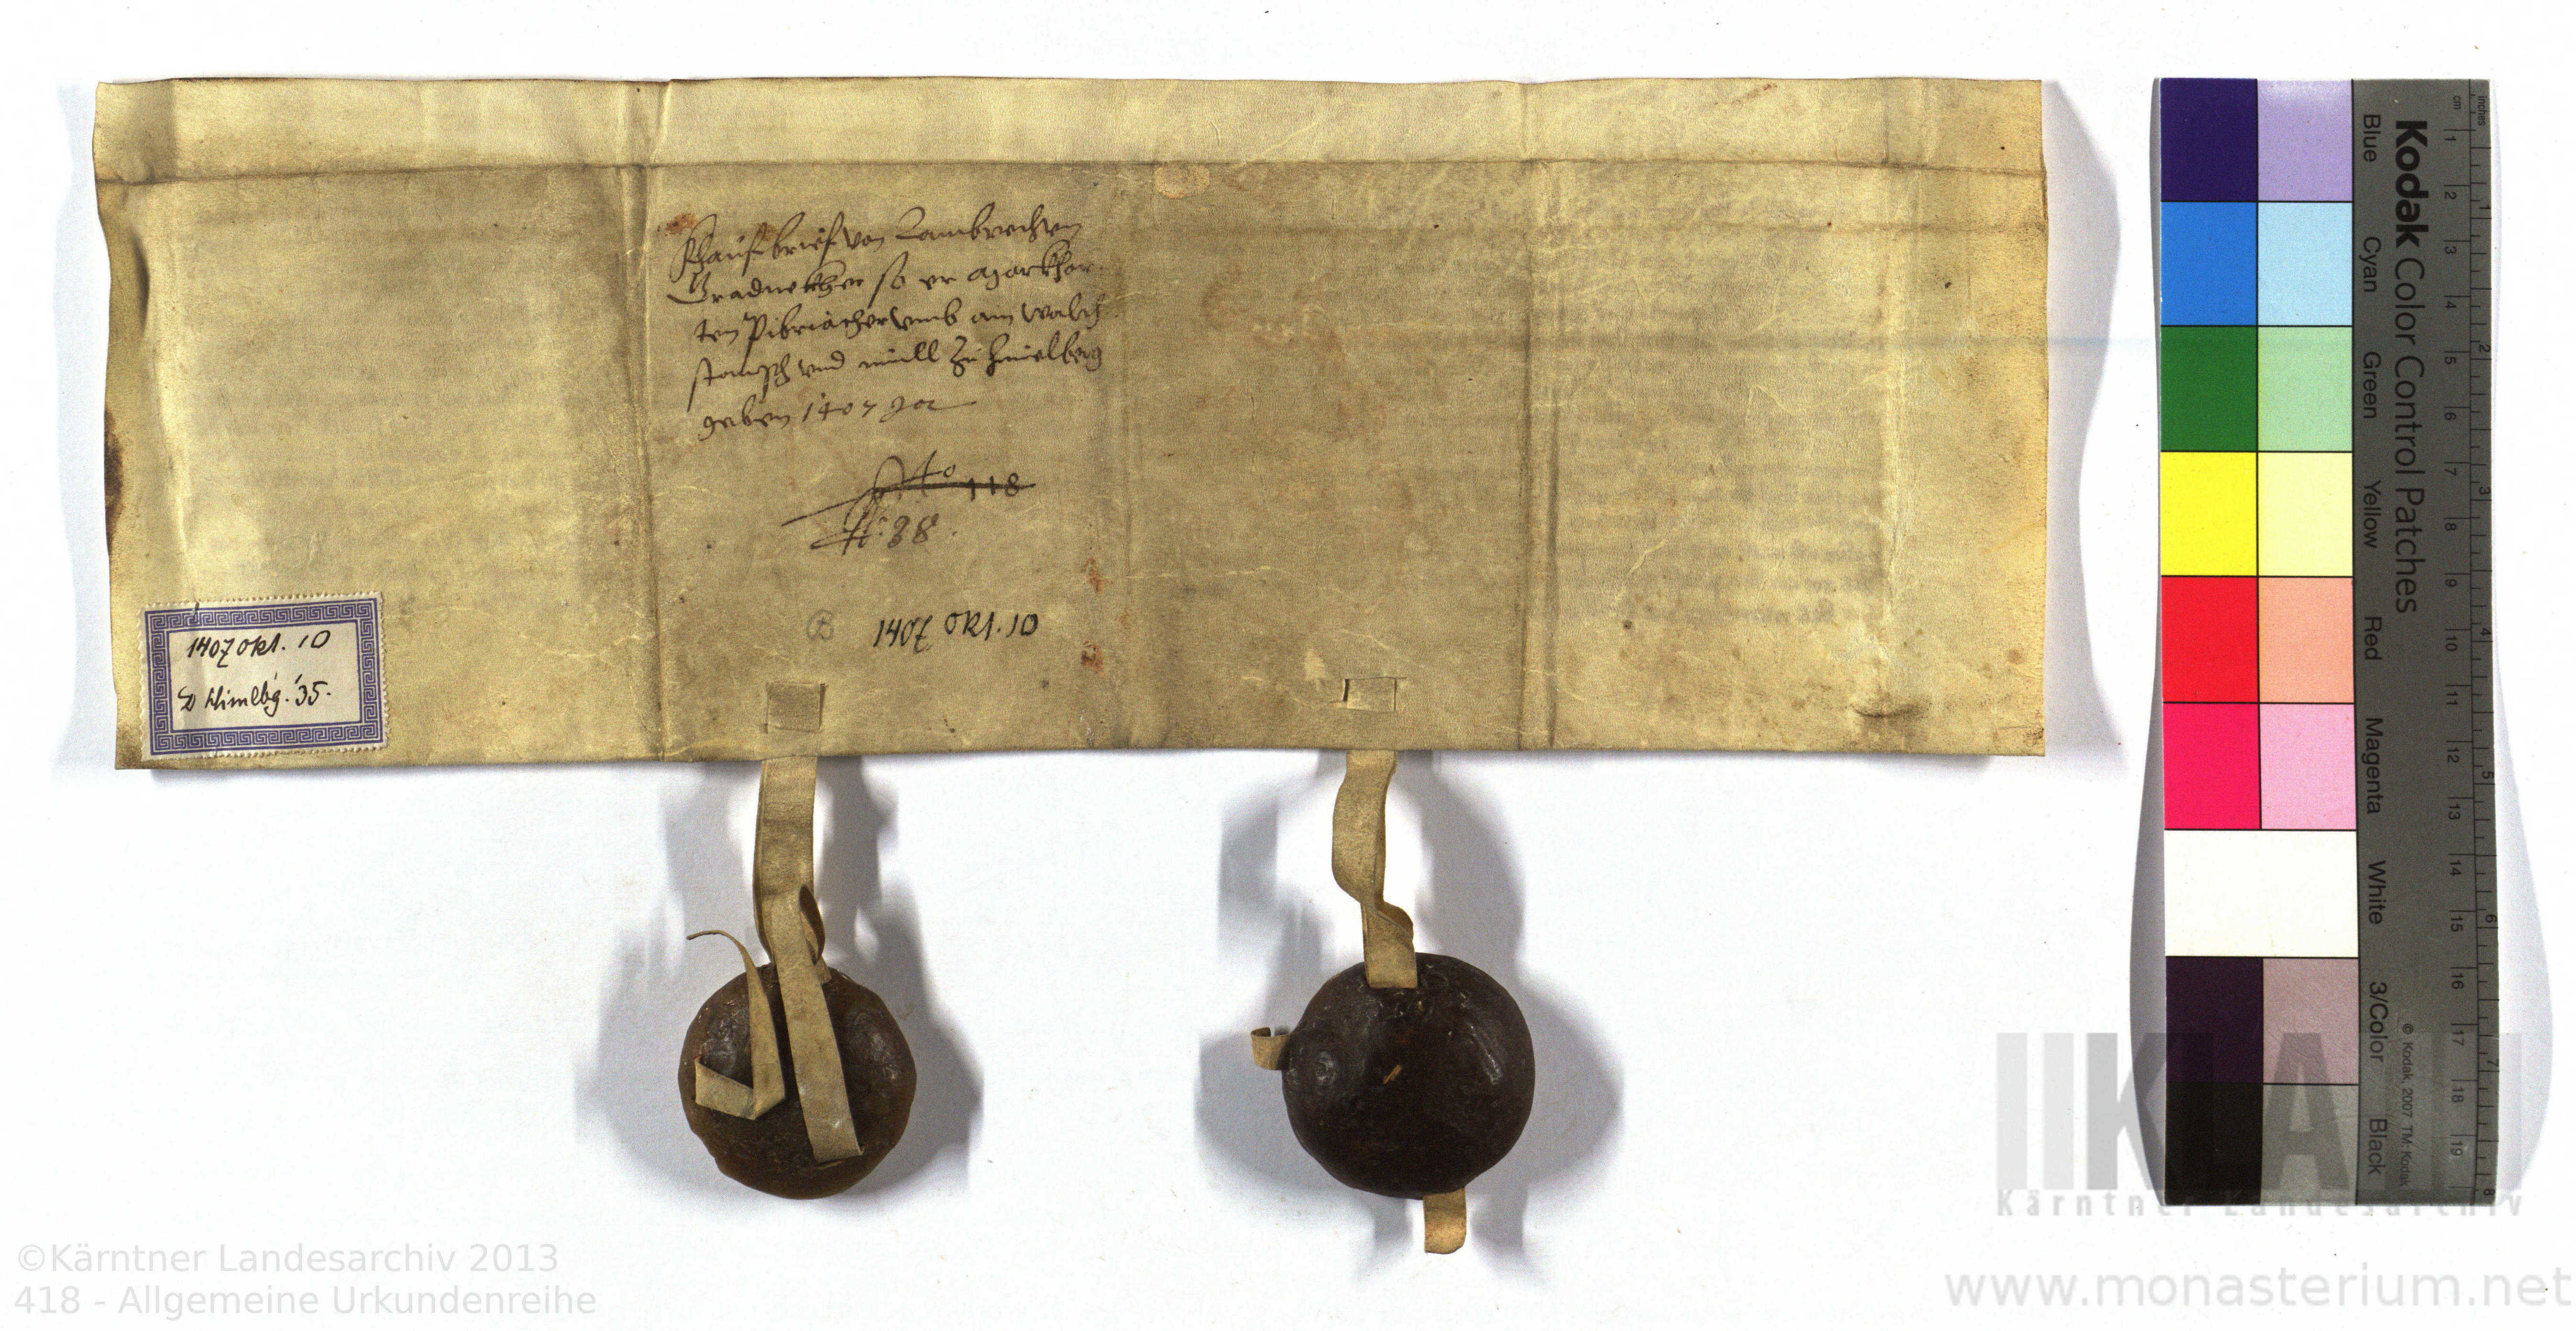 Khauf brief von Lambrechten
Gradnekher so er Markhar
ten Pibriacher vmb ain walch
stampf vnd müll zu Himelberg
geben 1407 Jar
No 118
N: 88.
B 1407 Okt. 10
1407 Okt. 10
D Himlbg. 35.
Kodak Color Control Patches
Blue Cyan Green Yellow Red Magenta White 3/Color Black
© Kodak, 2007 TM: Kodak
inches 1 2 3 4 5 6 7 8
cm 1 2 3 4 5 6 7 8 9 10 11 12 13 14 15 16 17 18 19
Kärntner Landesarchiv
©Kärntner Landesarchiv 2013
418 - Allgemeine Urkundenreihe
www.monasterium.net